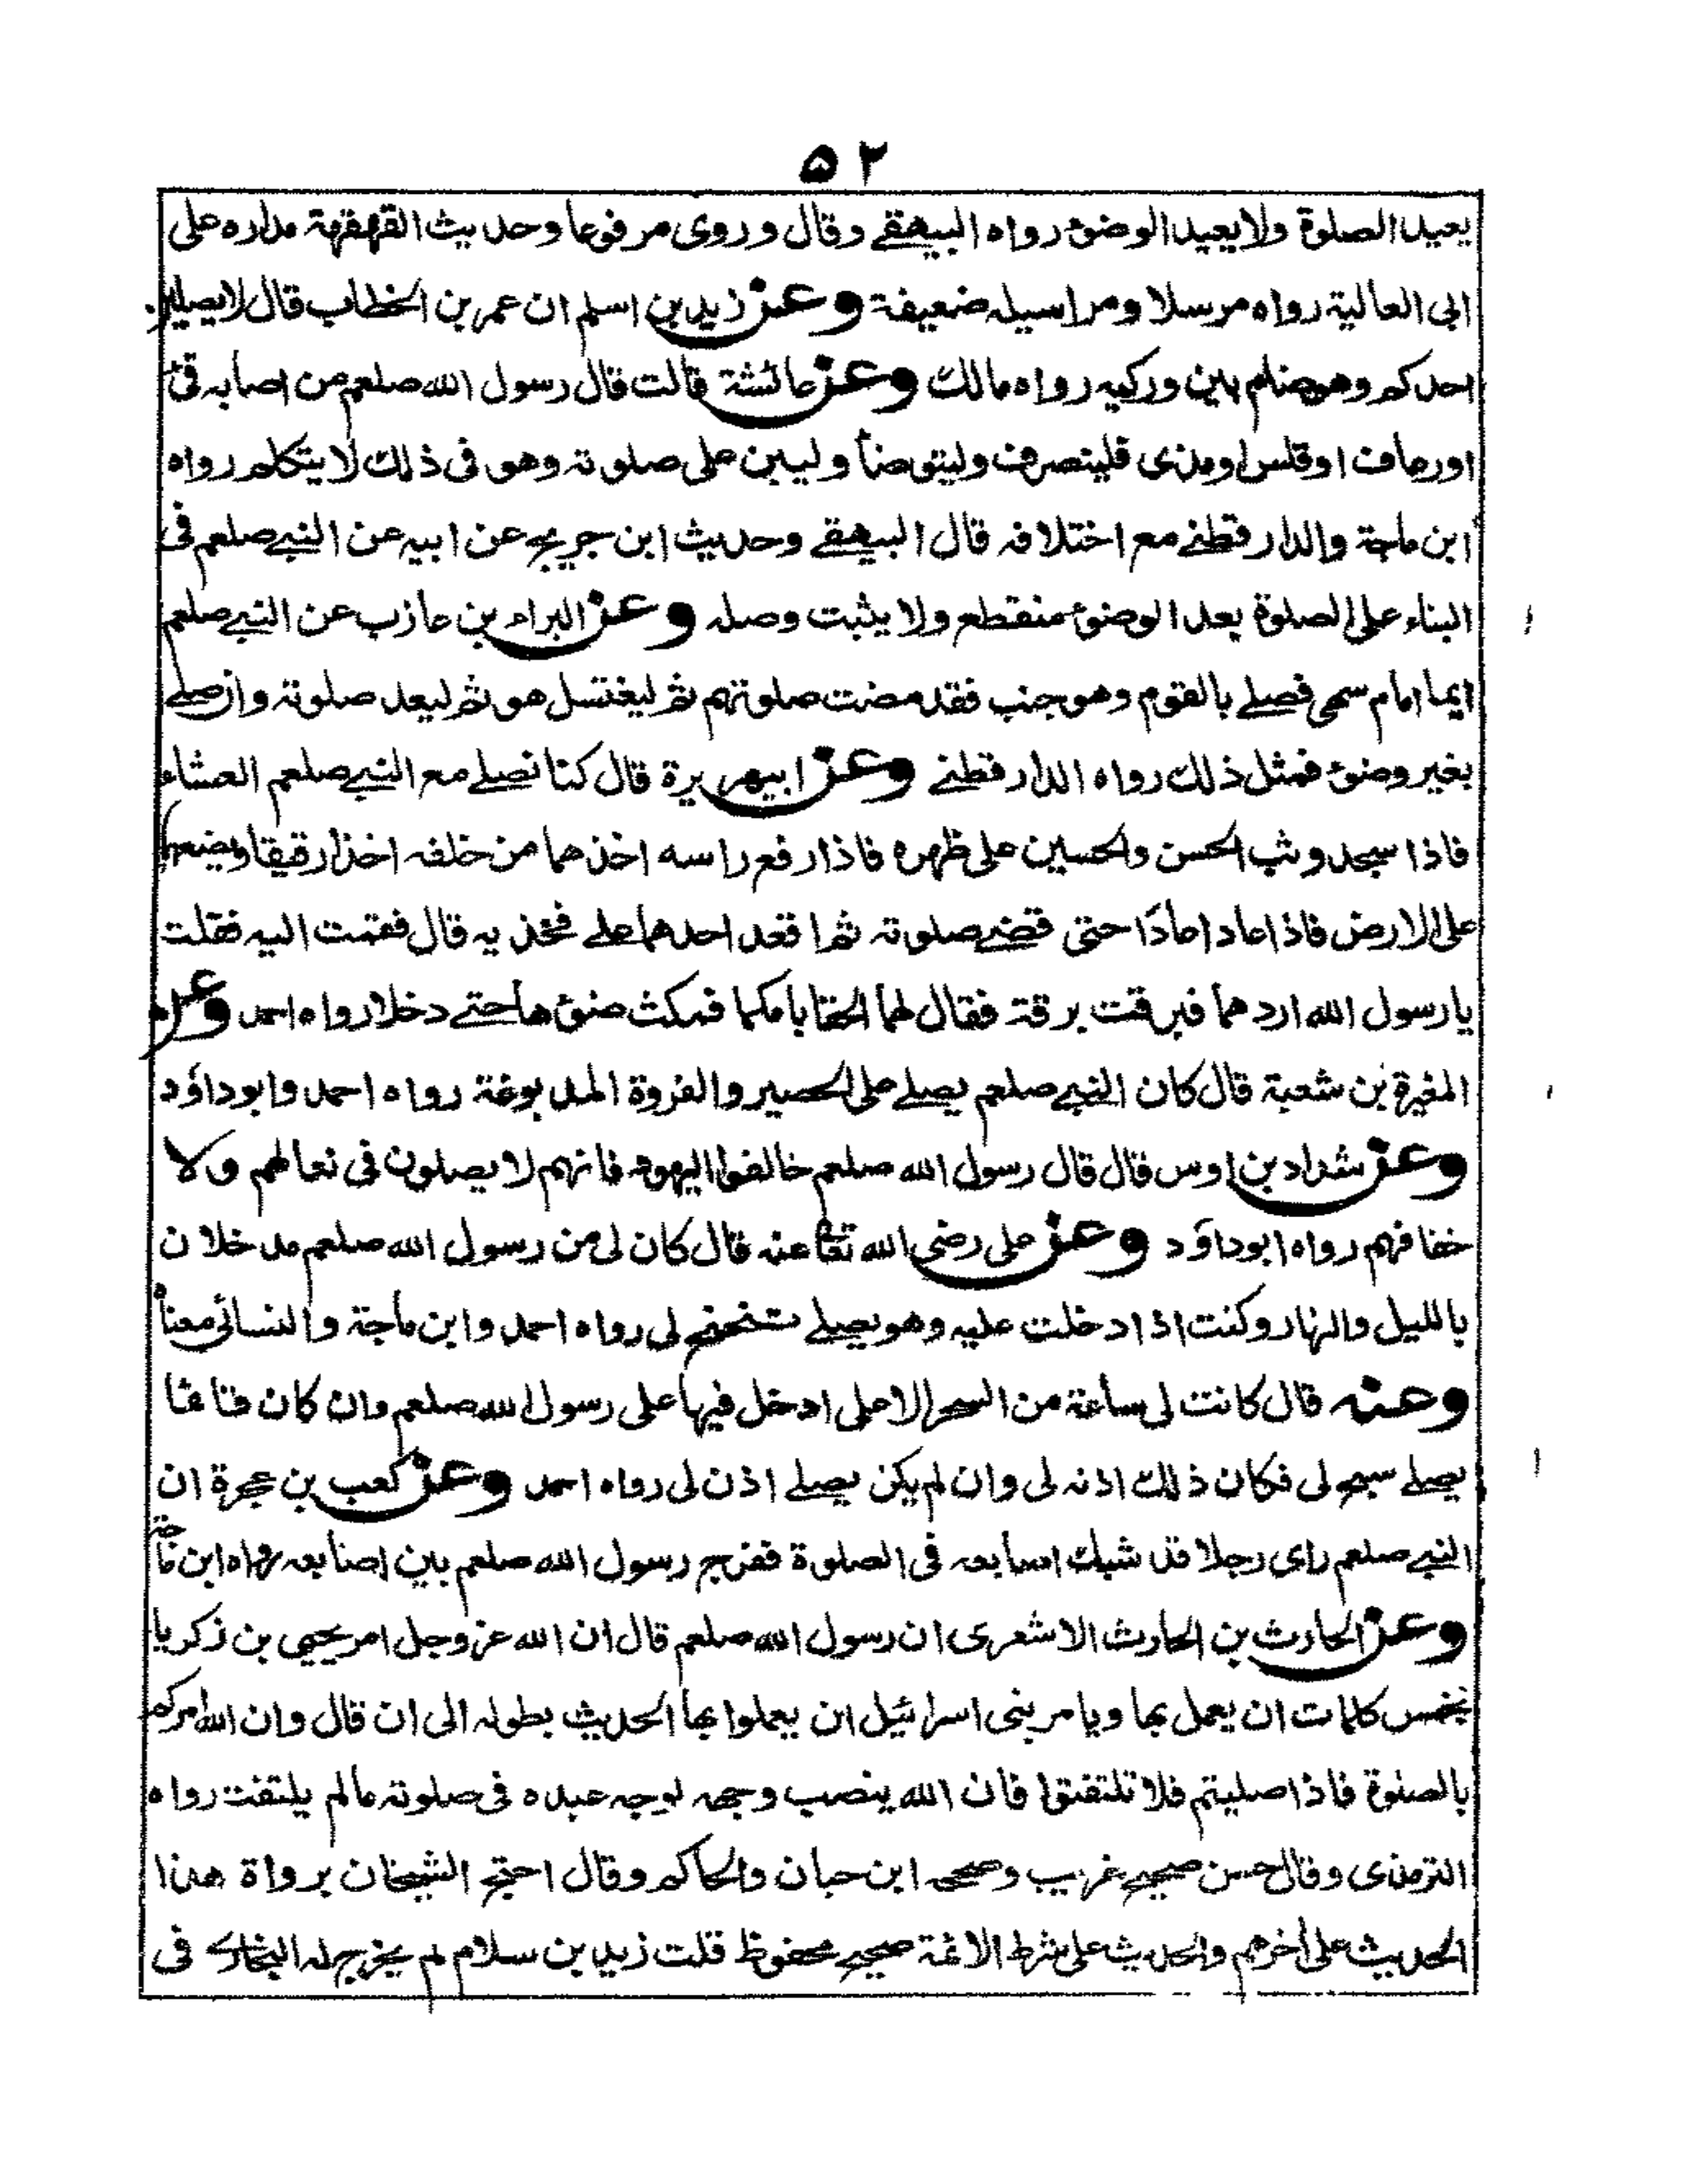 ۵۲
يعيد الصلوة ولا يعيد الوضوء رواه البيهقے وقال وروى مرفوعا وحديث القهقهة مداره على
ابى العالية رواه مرسلا ومراسيله ضعيفة وعن زيد بن اسلم ان عمر بن الخطاب قال لا يصلين
احدكم وهو ضام بين وركيه رواه مالك وعن عائشة قالت قال رسول الله صلعم من اصابه قئ
اورعاف اوقلس اومذى فلينصرف وليتوضأ وليبن على صلوته وهو فى ذلك لا يتكلم رواه
ابن ماجة والدارقطنے مع اختلافه قال البيهقے وحديث ابن جريج عن ابيه عن النبے صلعم فى
البناء على الصلوة بعد الوضوء منقطع ولا يثبت وصله وعن البراء بن عازب عن النبے صلعم
ايما امام سهى فصلے بالقوم وهو جنب فقد مضت صلوتهم ثم ليغتسل هو ثم ليعد صلوته وان صلے
بغير وضوء فمثل ذلك رواه الدارقطنے وعن ابيهريرة قال كنا نصلے مع النبے صلعم العشاء
فاذا سجد وثب الحسن والحسين على ظهره فاذا رفع راسه اخذهما من خلفه اخذا رقيقا ويضعهما
على الارض فاذا عاد اعادا حتى قضے صلوته ثم اقعد احدهما علے فخذيه قال فقمت اليه فقلت
يا رسول الله اردهما فبرقت برقة فقال لهما الحقا بامكما فمكث ضوءها حتے دخلا رواه احمد وعن
المغيرة بن شعبة قال كان النبے صلعم يصلے على الحصير والفروة المدبوغة رواه احمد وابوداؤد
وعن شداد بن اوس قال قال رسول الله صلعم خالفوا اليهود فانهم لا يصلون فى نعالهم ولا
خفافهم رواه ابوداؤد وعن على رضى الله تعالى عنه قال كان لى من رسول الله صلعم مدخلان
بالليل والنهار وكنت اذا دخلت عليه وهو يصلے تنحنح لى رواه احمد وابن ماجة والنسائى معناه
وعنه قال كانت لى ساعة من السحر الاعلى ادخل فيها على رسول الله صلعم وان كان قائما
يصلے سبح لى فكان ذلك اذنه لى وان لم يكن يصلے اذن لى رواه احمد وعن كعب بن عجرة ان
النبے صلعم راى رجلا قد شبك اصابعه فى الصلوة ففرج رسول الله صلعم بين اصابعه رواه ابن ماجة
وعن الحارث بن الحارث الاشعرى ان رسول الله صلعم قال ان الله عز وجل امر يحيى بن زكريا
بخمس كلمات ان يعمل بها ويامر بنى اسرائيل ان يعملوا بها الحديث بطوله الى ان قال وان الله امركم
بالصلوة فاذا صليتم فلا تلتفتوا فان الله ينصب وجهه لوجه عبده فى صلوته مالم يلتفت رواه
الترمذى وقال حسن صحيح غريب وصححه ابن حبان والحاكم وقال احتج الشيخان برواة هذا
الحديث على أخرهم والحديث على شرط الائمة صحيح محفوظ قلت زيد بن سلام لم يخرج له البخارے فى